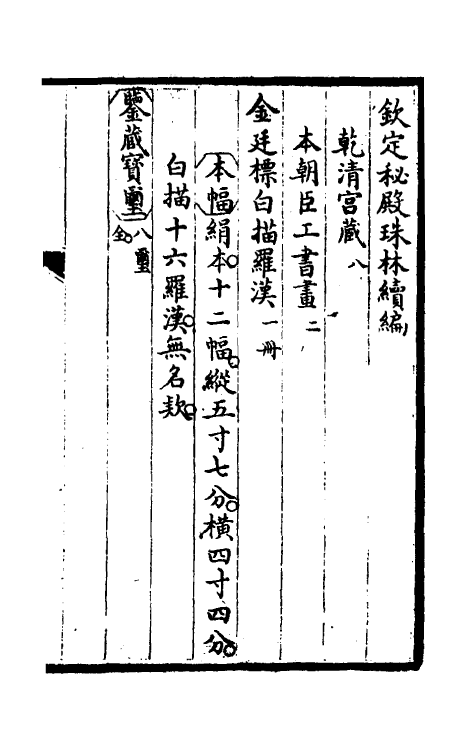 欽定秘殿珠林續編
乾清宮藏 八
本朝臣工書畫 二
金廷標白描羅漢 一冊
本幅絹本十二幅縱五寸七分橫四寸四分
白描十六羅漢無名款
鑒藏寶璽 八璽全